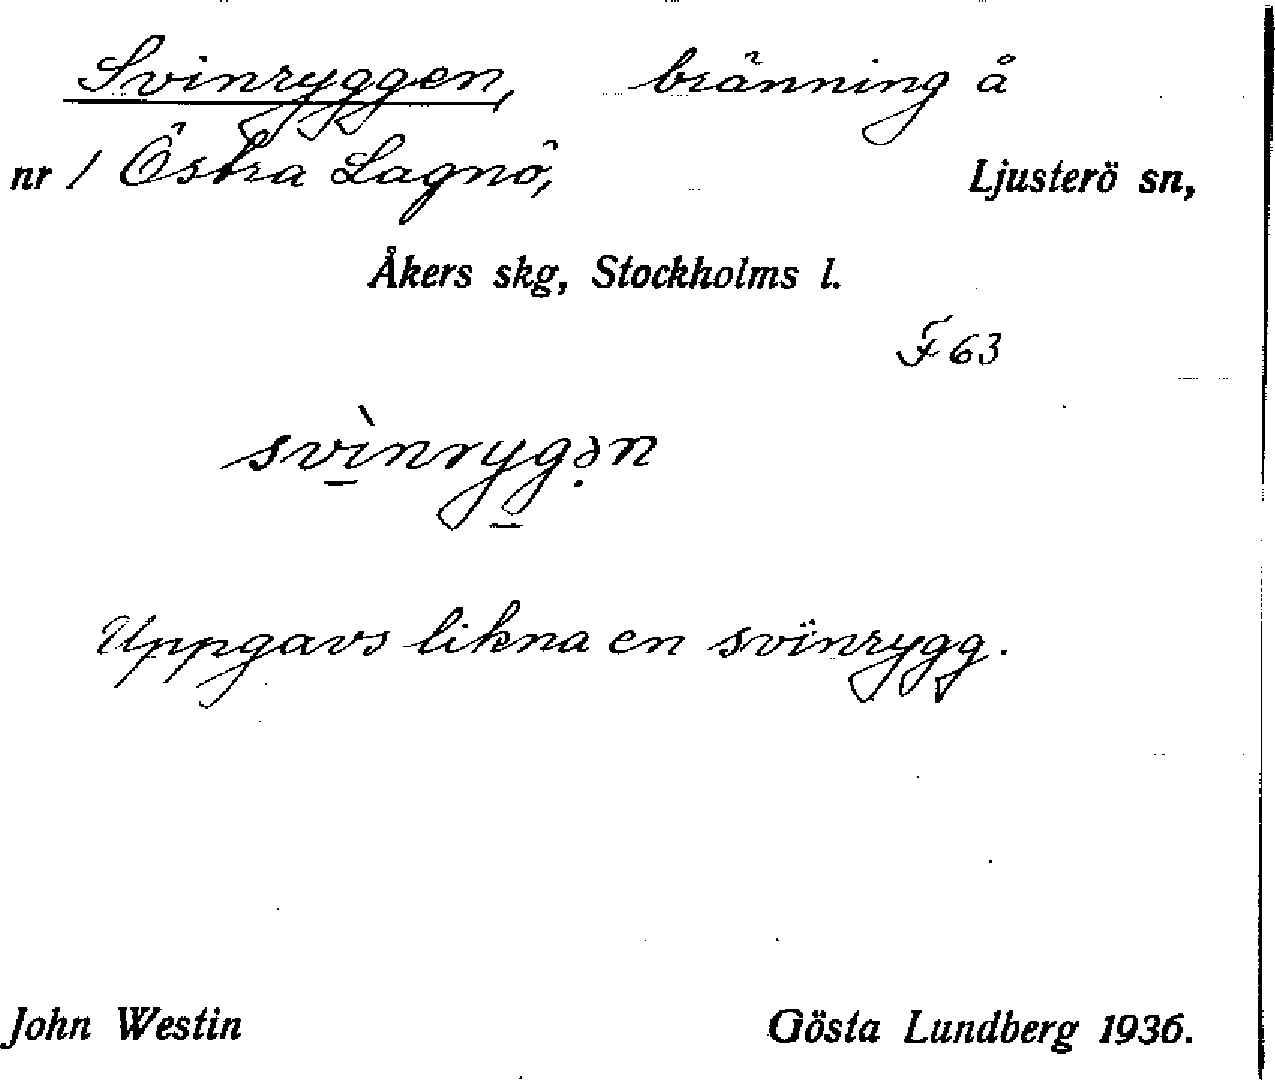 Svinryggen, bränning å
nr 1 Östra Lagnö, Ljusterö sn,
Åkers skg, Stockholms l.
F 63
svì̱nryg̱ə̣n
Uppgavs likna en svinrygg.
John Westin Gösta Lundberg 1936.